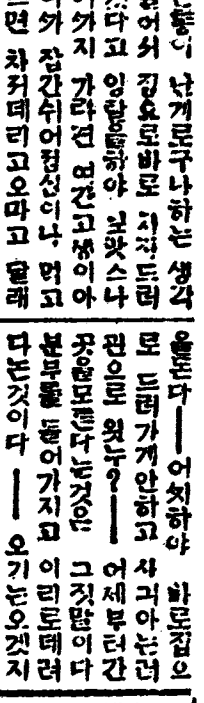 틀이 낫게로구나하는 생각
걸어서 집으로바로 드러
갓다고 앙탈을하야 보앗스나
지 가라면 여간고생이아
잠간쉬어점심이나 먹고
으면 차저데리고오마고 달래
어찌하야 바로집으
로 드러가게안하고 사긔아는려
관으로 왓누?── 어제부터간
곳을모른다는것은 그짓말이다
분부를 들어가지고 이리로데려
다는것이다 ── 오기는오겟지